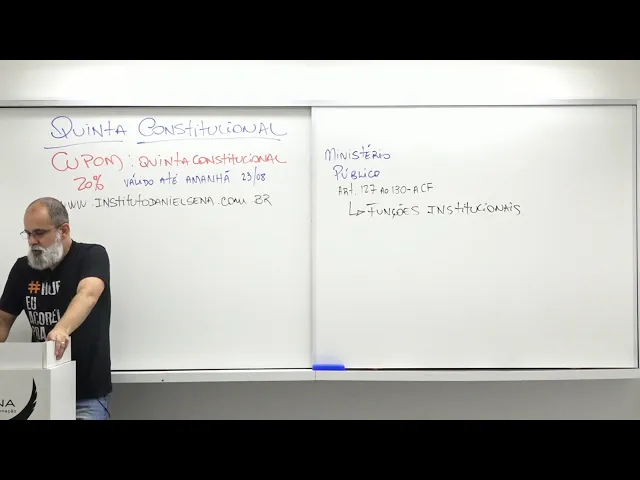 QUINTA CONSTITUCIONAL
CUPOM: QUINTACONSTITUCIONAL
20% VÁLIDO ATÉ AMANHÃ 23/08
WW.INSTITUTODANIELSENA.COM.BR
MINISTÉRIO
PÚBLICO
ART. 127 AO 130-A CF
↳ FUNÇÕES INSTITUCIONAIS
#HUF
EU
NA